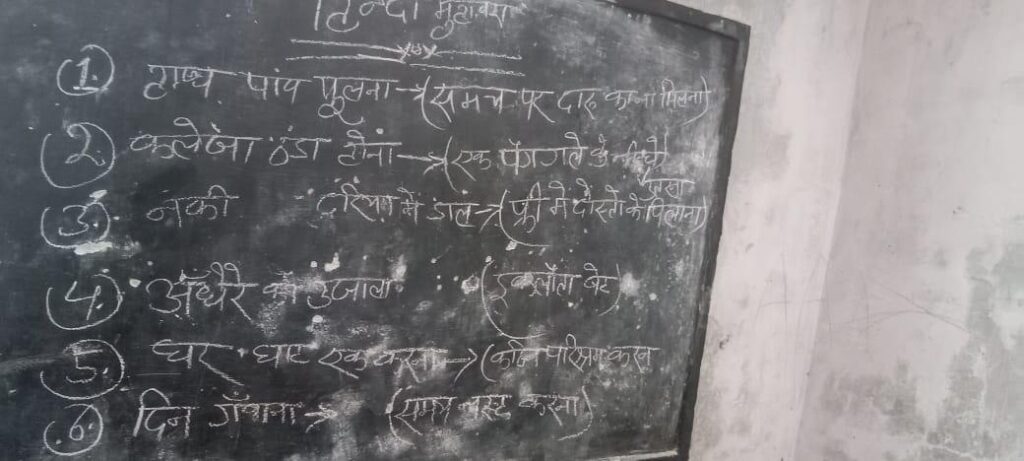 हिन्दी मुहावरा
1. हाथ पांव फूलना→(समय पर दारू का ना मिलना)
2. कलेजा ठंडा होना→(एक पेग गले के नीचे
3. नेकी दरिया में डाल→(फ्री में दोस्तो को पिलाना)
4. अँधेरे का उजाला (इकलौता बेटा)
5. घर घाट एक करना→(कठिन परिश्रम करना
6. दिन गँवाना→ (समय नष्ट करना)